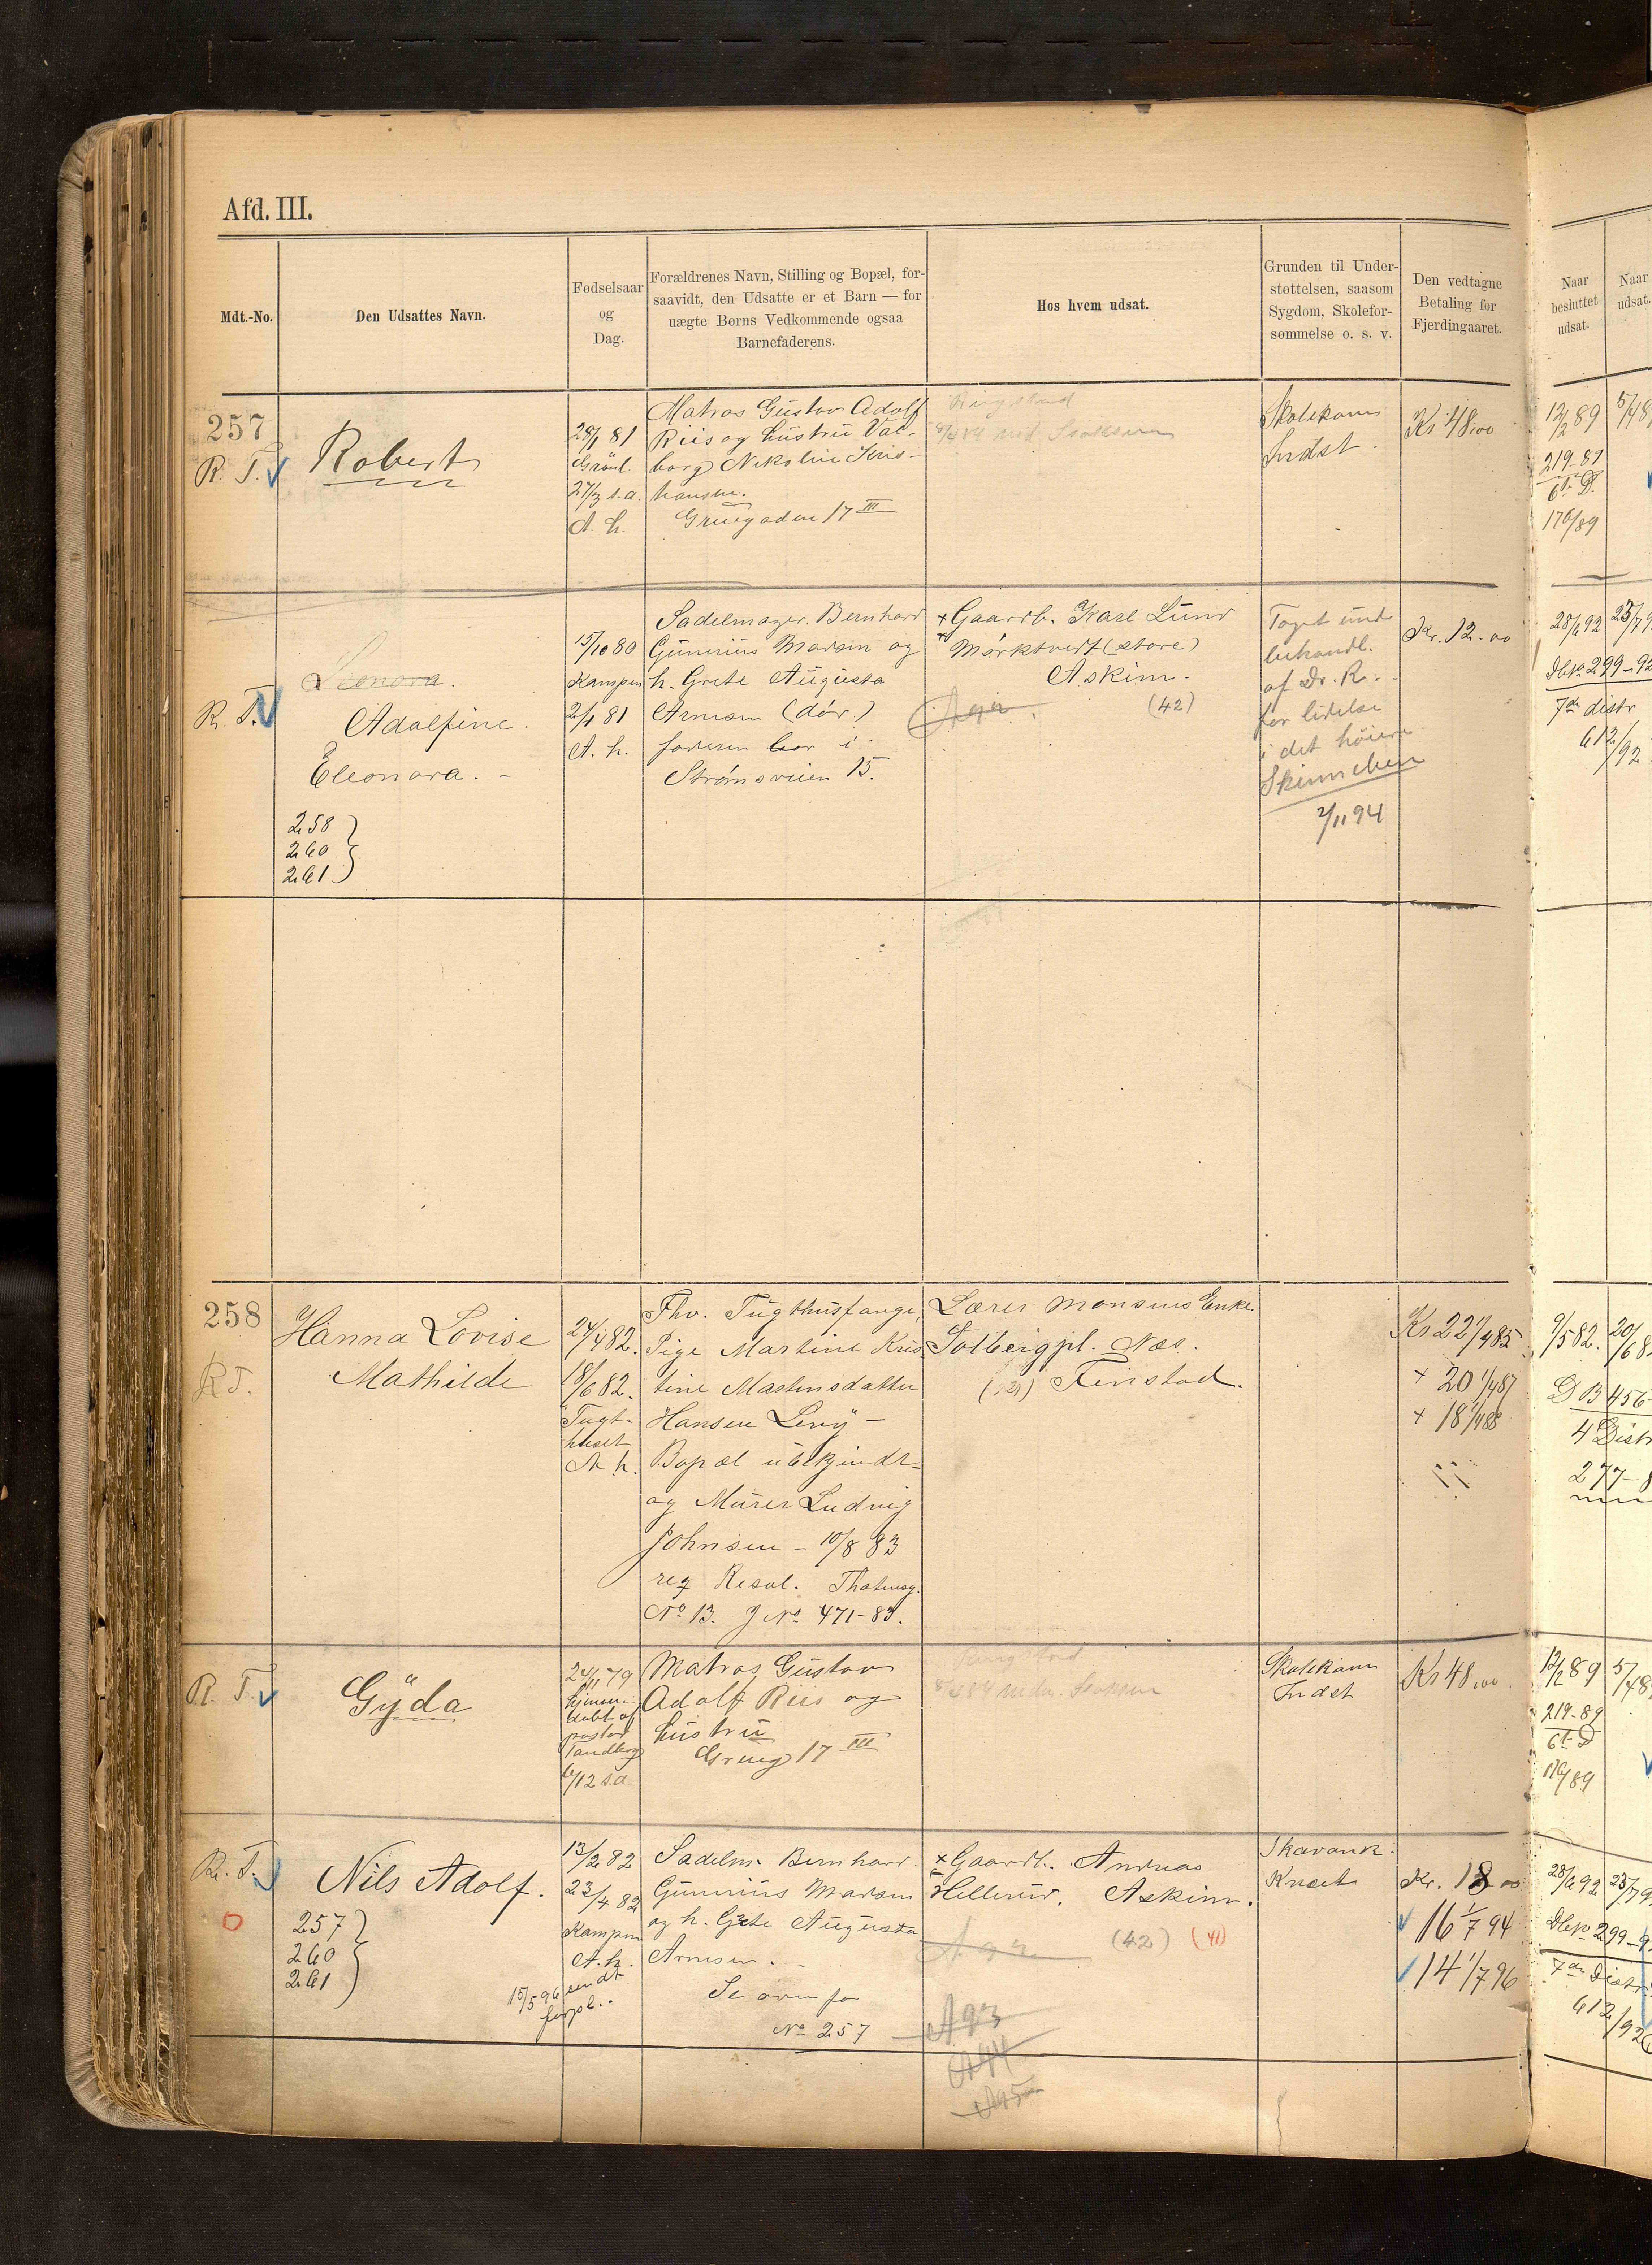 Afd. III.
Mdt.-No.
Den Udsattes Navn.
Fødselsaar
og
Dag.
Forældrenes Navn, Stilling og Bopæl, for-
saavidt, den Udsatte er et Barn — for
uægte Børns Vedkommende ogsaa
Barnefaderens.
Hos hvem udsat.
Grunden til Under-
støttelsen, saasom
Sygdom, Skolefor-
sømmelse o. s. v.
Den vedtagne
Betaling for
Fjerdingaaret.
Naar
besluttet
udsat.
Naar
udsat.
257
R. T.
Robert
28/1 81
Grønl.
27/3 s.a.
A. h.
Matros Gustav Adolf
Riis og hustru Val-
borg Nikoline Kris-
tiansen.
Gruegaden 17 III
Ringstad
Skolekom
Indst.
Kr 48,00
12/2 89
219-89
6te D.
176/89
R. T.
Leonora.
Adolfine.
Eleonora. -
258
260
261
15/10 80
Kampen
2/1 81
A. h.
Sadelmager Bernhard
Gunerius Madsen og
h. Grete Augusta
Arnesen (død)
faderen bor i
Strømsveien 15.
+ Gaardb. Karl Lund
Mørktvedt (store)
Askim.
(42)
Taget und
behandl.
af Dr. R.
for lidelse
i det høire
Skinneben
2/11 94
Kr. 12.00
28/6 92
299-92
7de distr
612/92
258
R T.
Hanna Lovise
Mathilde
24/4 82.
18/6 82.
Tugt-
huset
A h.
Fhv. Tugthusfange,
Pige Martine Kris-
tine Mastensdatter
Hansen Levy -
Bopæl ubekjendt -
og Murer Ludvig
Johnsen - 10/8 83
reg Resol. Tholmsg.
No 13. J No 471-83.
Lærer Monsens Enke.
Solbergpl. Næs.
Fenstad.
Kr 22 1/4 85
+ 20 1/4 87
+ 18 1/4 88
9/5 82.
D B 456
4 Distr
277-8
R. T.
Gyda
24/11 79
hjemme-
døbt af
pastor
Tandberg
6/12 s.a.
Matros Gustav
Adolf Riis og
hustru
Grueg 17 III
Ringstad
Skolekom
Indst
Kr 48,00
12/2 89
219-89
6te D
176/89
R. T.
Nils Adolf.
257
260
261
13/2 82
23/4 82
Kampen
A. h.
15/5 96 sendt
forpl..
Sadelm. Bernhard
Gunerius Madsen
og h. Grete Augusta
Arnesen.
Se ovenfor
No 257
+ Gaardb. Andreas
Hellerud, Askim.
(42) (41)
A 93
A 94
A 95
Skavank.
Knæet
Kr. 18 00
16 1/7 94
14 1/7 96
28/6 92
299-9
7de Distr.
612/92